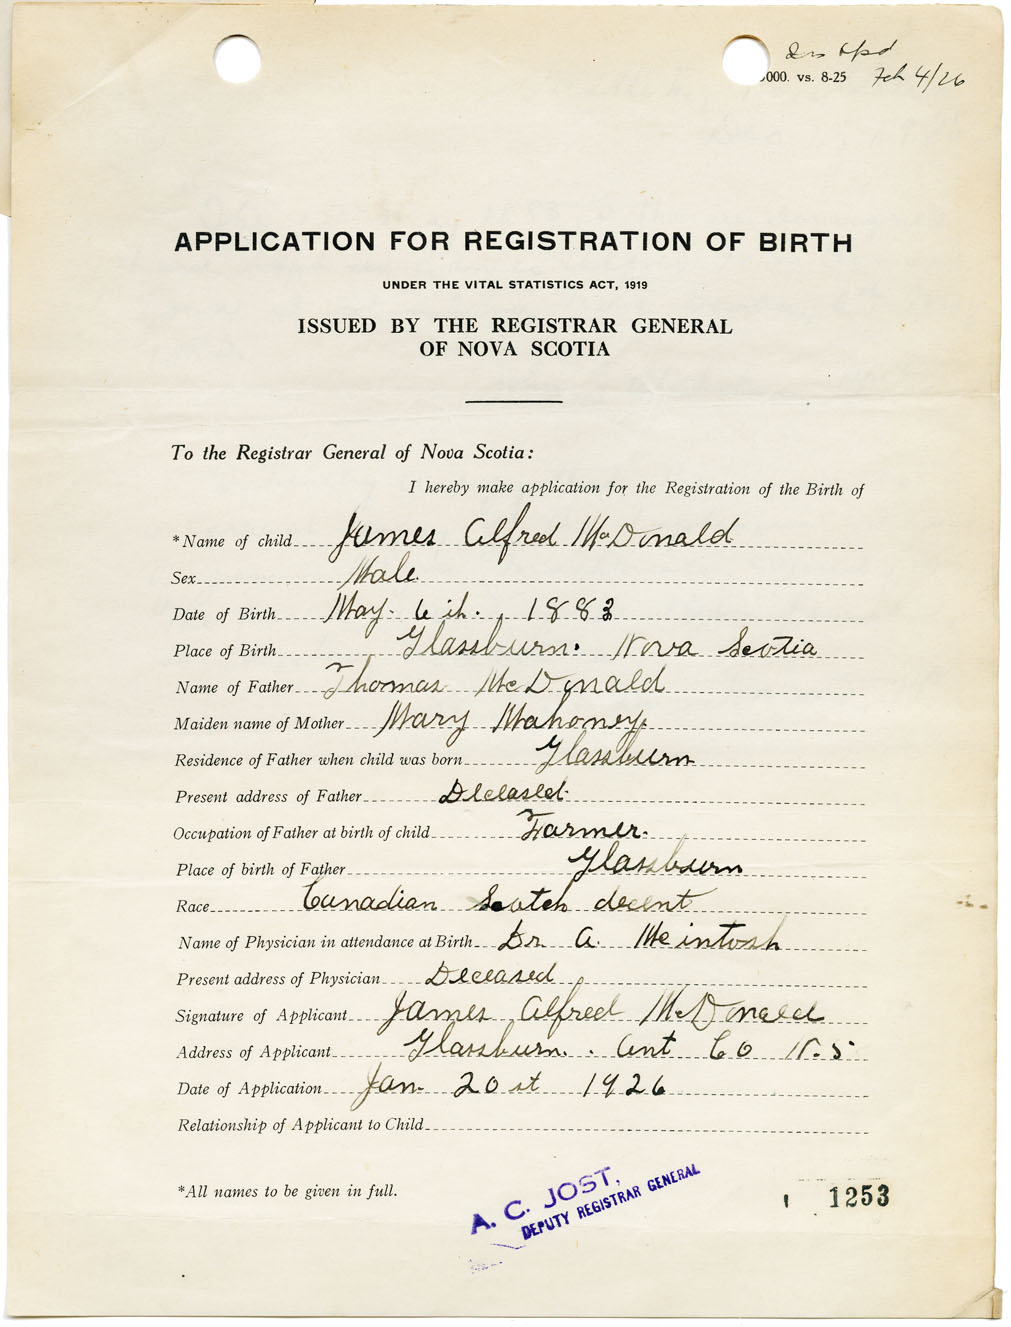 000. vs. 8-25 Feb 4/26
APPLICATION FOR REGISTRATION OF BIRTH
UNDER THE VITAL STATISTICS ACT, 1919
ISSUED BY THE REGISTRAR GENERAL
OF NOVA SCOTIA
To the Registrar General of Nova Scotia:
I hereby make application for the Registration of the Birth of
*Name of child James Alfred McDonald
Sex Male.
Date of Birth May. 6th. 1883
Place of Birth Glassburn. Nova Scotia
Name of Father Thomas McDonald
Maiden name of Mother Mary Mahoney.
Residence of Father when child was born Glassburn
Present address of Father Deceased.
Occupation of Father at birth of child Farmer.
Place of birth of Father Glassburn
Race Canadian Scotch decent
Name of Physician in attendance at Birth Dr. A. McIntosh
Present address of Physician Deceased
Signature of Applicant James Alfred McDonald
Address of Applicant Glassburn. Ant Co N.S
Date of Application Jan. 20st 1926
Relationship of Applicant to Child
*All names to be given in full.
A. C. JOST,
DEPUTY REGISTRAR GENERAL
1253